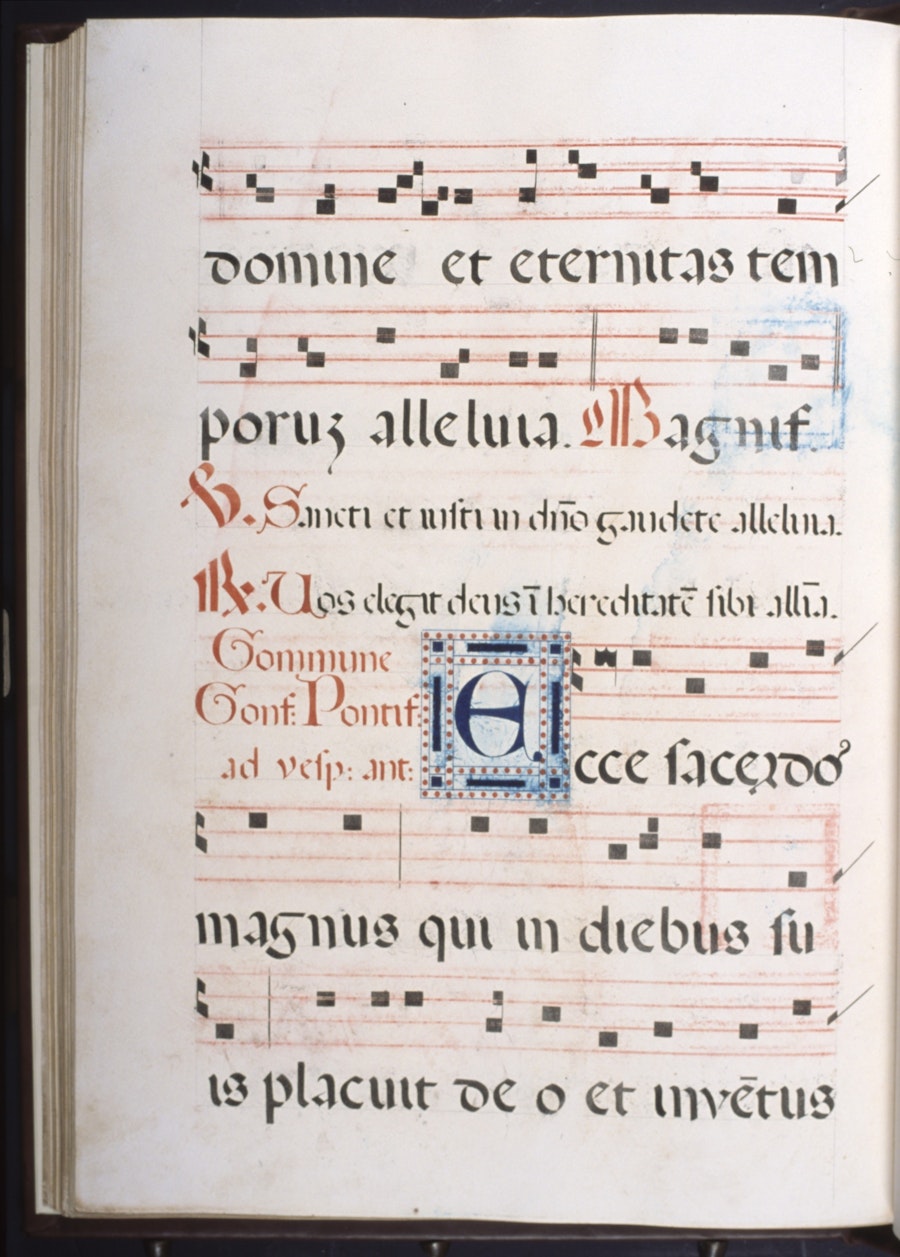 domine et eternitas tem
poruʒ alleluia. Magnif.
℣. Sancti et iusti in dño gaudete alleluia.
℟. Uos elegit deus ī hereditatē sibi allīa.
Commune
Conf: Pontif:
ad vesp: ant:
Ecce sacerdo
magnus qui in diebus su
is placuit de o et invētus